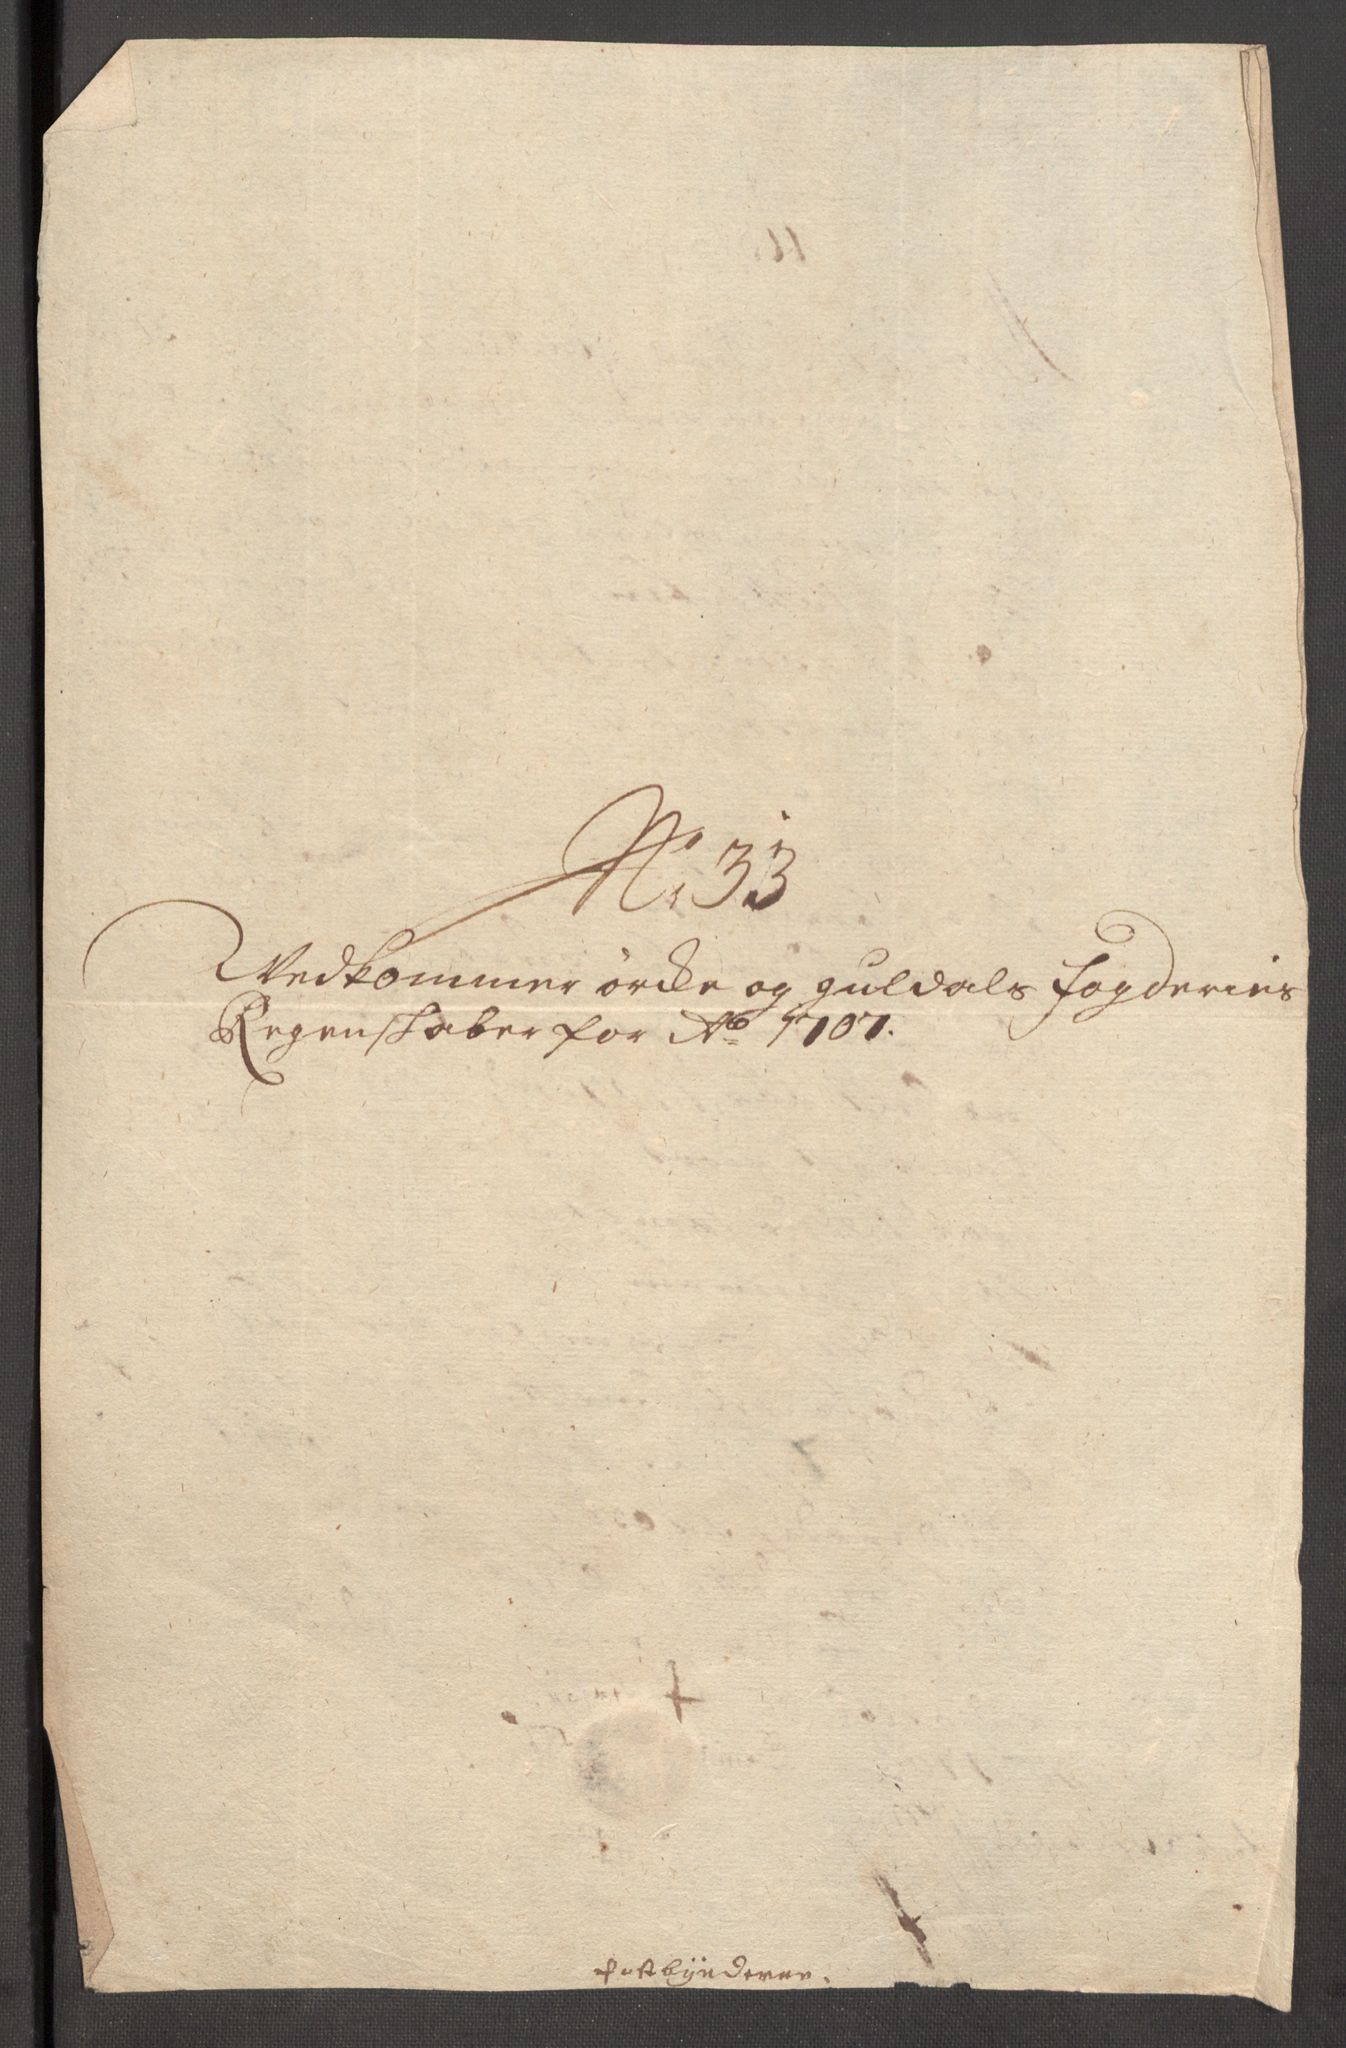 No 33
Vedkommer ørcke og guldals fogderies
Regenskaber for Ao 1707.